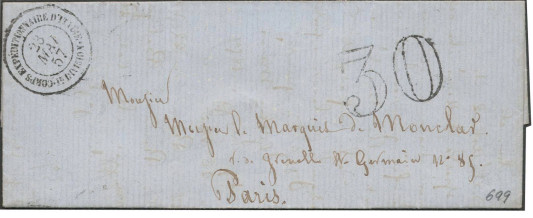 CORPS EXPEDITIONNAIRE D'ITALIE
28
MAI
57
30
Monsieur
Monsieur le Marquis de Monclar
r. de Grenelle St Germain nº 85.
Paris.
699